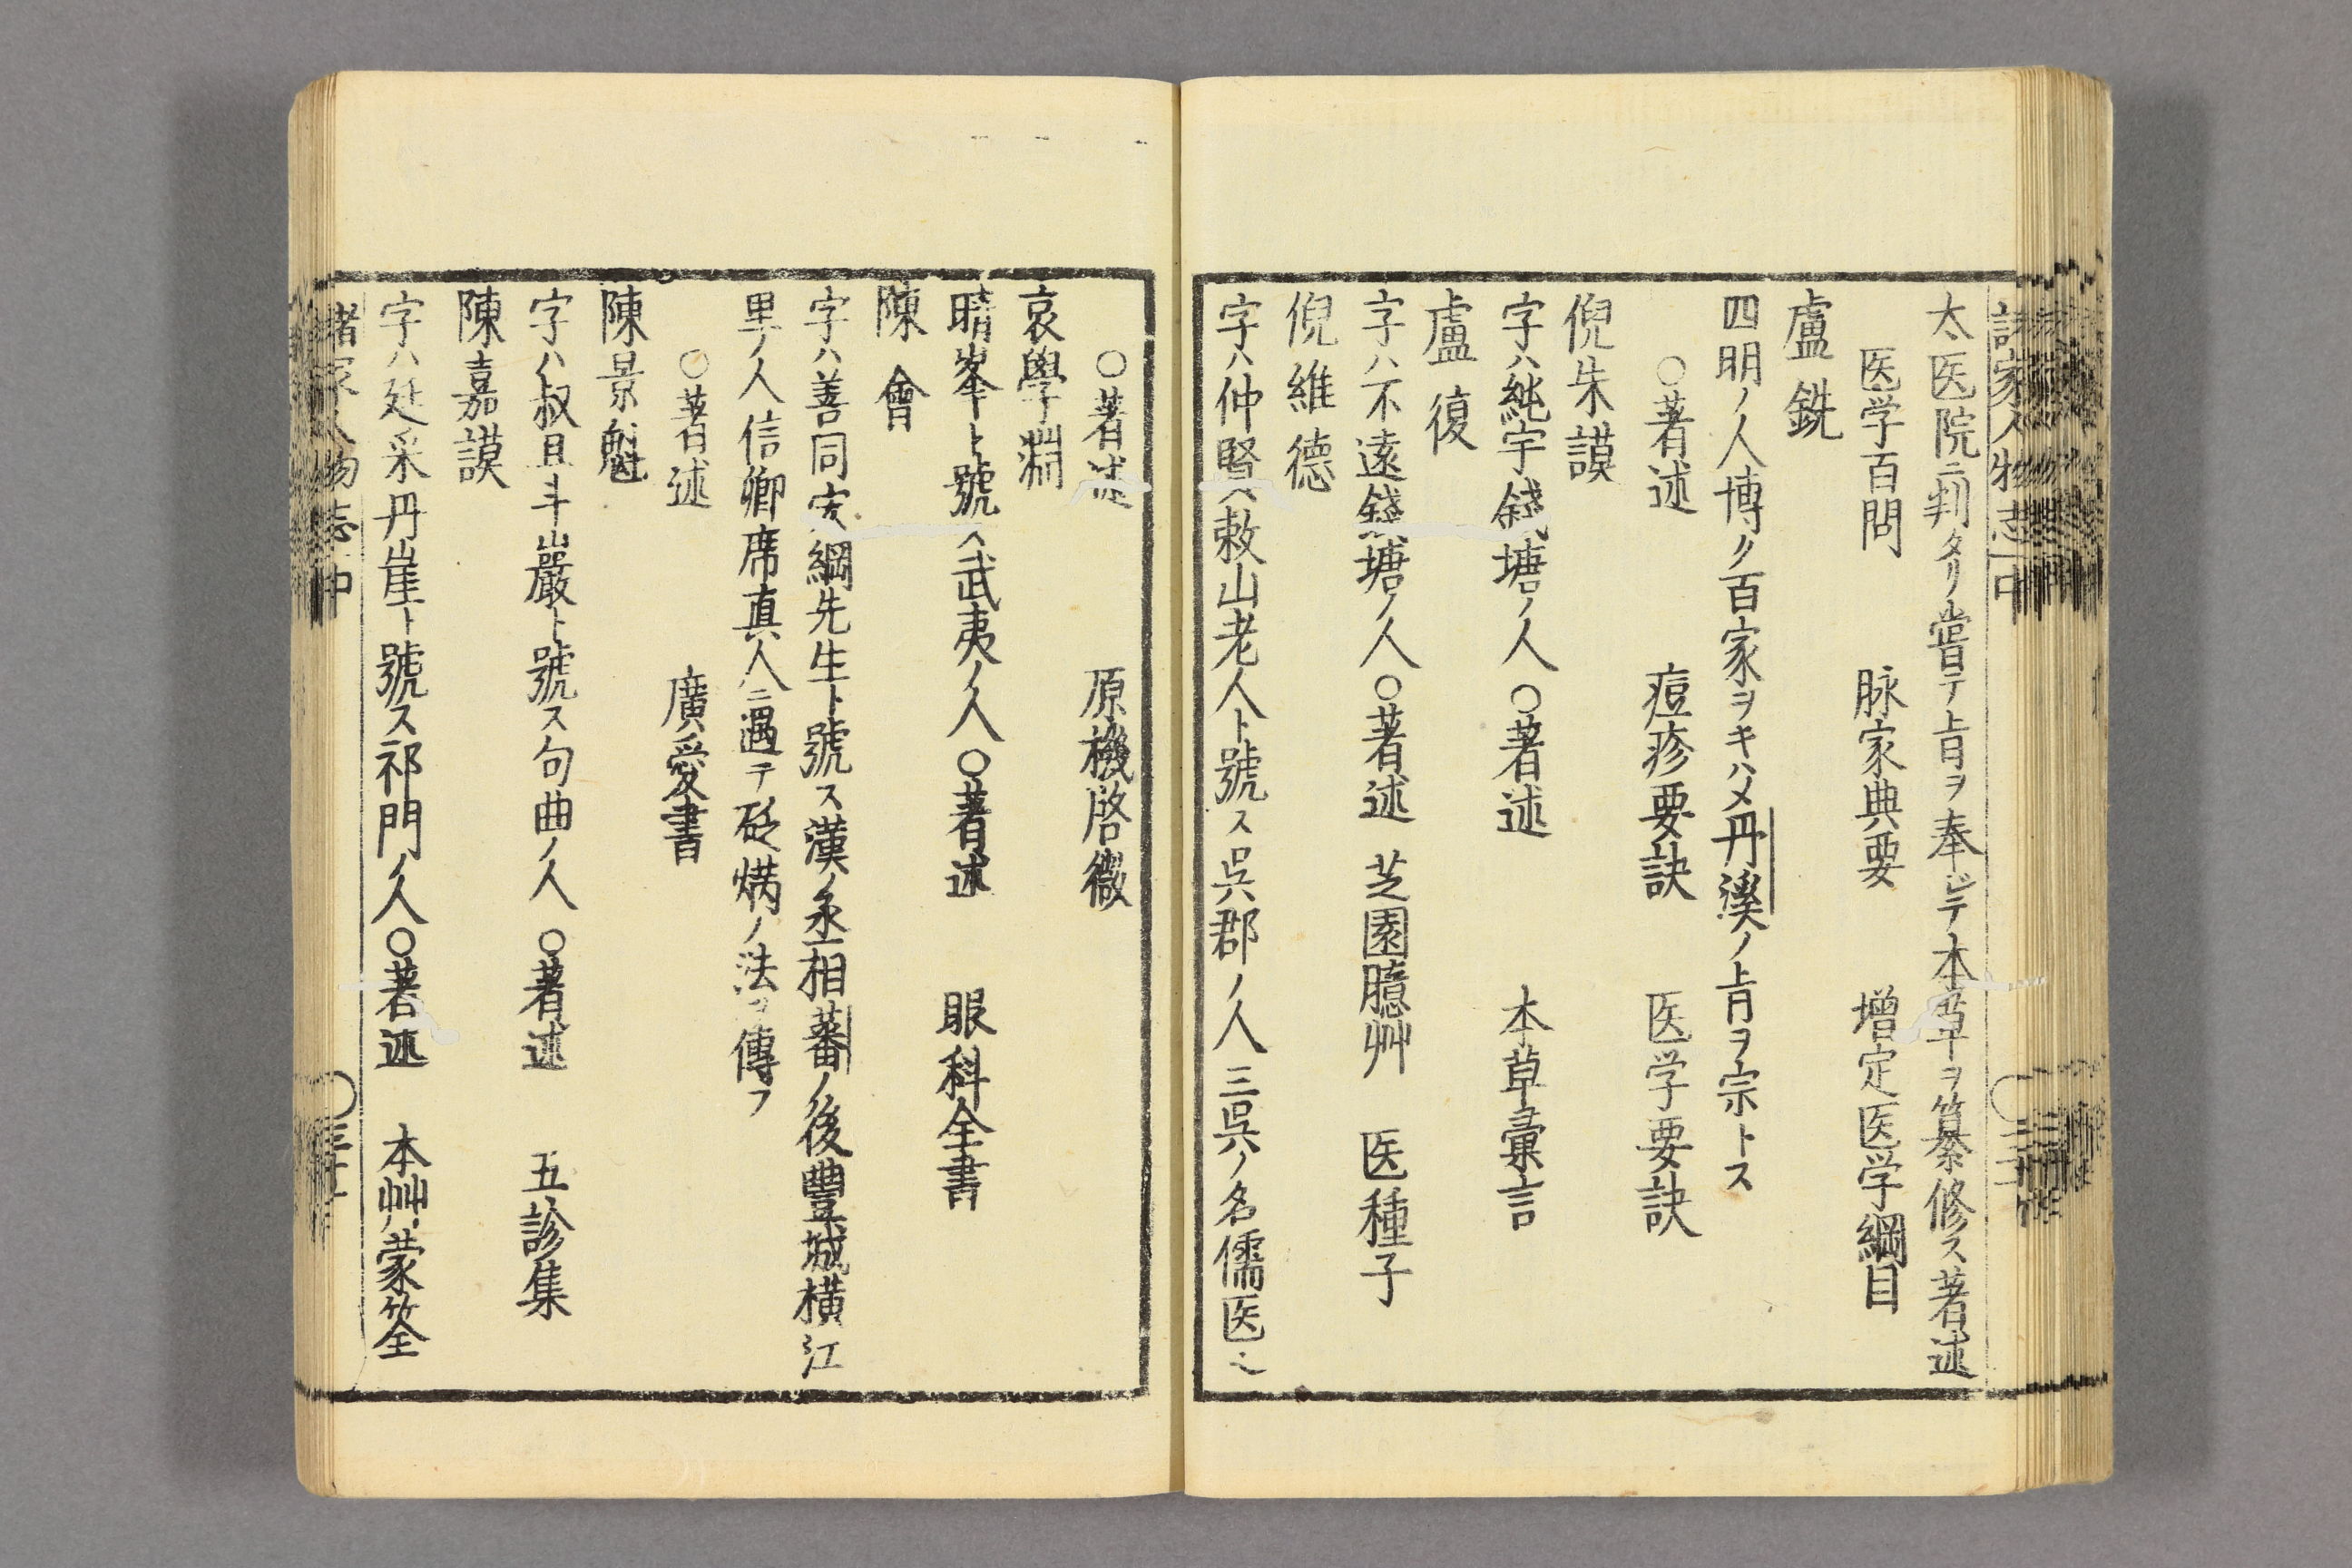 諸家人物志 中
太医院ニ判タリ嘗テ旨ヲ奉ジテ本草ヲ纂修ス著述
医学百問 脉家典要 增定医学綱目
盧銑
四明ノ人博ク百家ヲキハメ丹溪ノ旨ヲ宗トス
○著述 痘疹要訣 医学要訣
倪朱謨
字ハ純宇錢塘ノ人○著述 本草彙言
盧復
字ハ不遠錢塘ノ人○著述 芝園臆艸 医種子
倪維德
字ハ仲賢敕山老人ト號ス呉郡ノ人三呉ノ名儒医也
○著述 原機啓微
哀學淵
晴峯ト號ス武夷ノ人○著述 眼科全書
陳會
字ハ善同宏綱先生ト號ス漢ノ丞相蕃ノ後豐城横江
里ノ人信卿席真人ニ遇テ砭焫ノ法ヲ傳フ
○著述 廣愛書
陳景魁
字ハ叔旦斗嵓ト號ス句曲ノ人○著述 五診集
陳嘉謨
字ハ廷采丹崖ト號ス祁門ノ人○著述 本艸蒙筌
諸家人物志 中